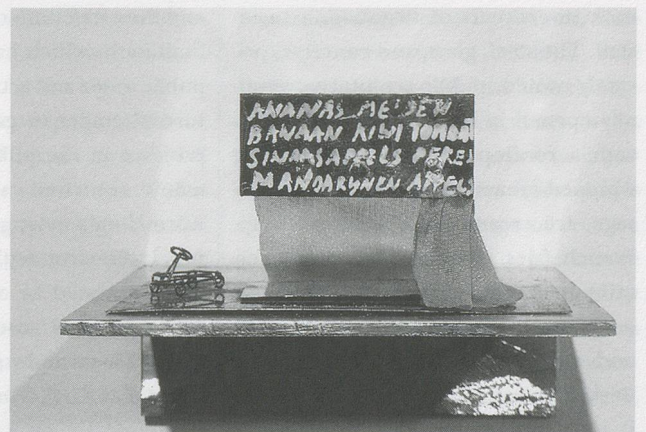 ANANAS MELOEN
BANAAN KIWI TOMAAT
SINAASAPPELS PEREN
MANDARYNEN APPELS